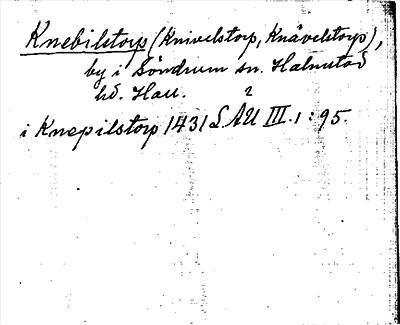 Knebilstorp (Knivelstorp, Knävelstorp),
by i Söndrum sn. Halmstad
hd. Hall.
i Knepilstorp 1431 LAU III. 1:95.